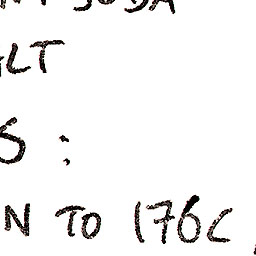 SODA
LT
S :
N TO 176C